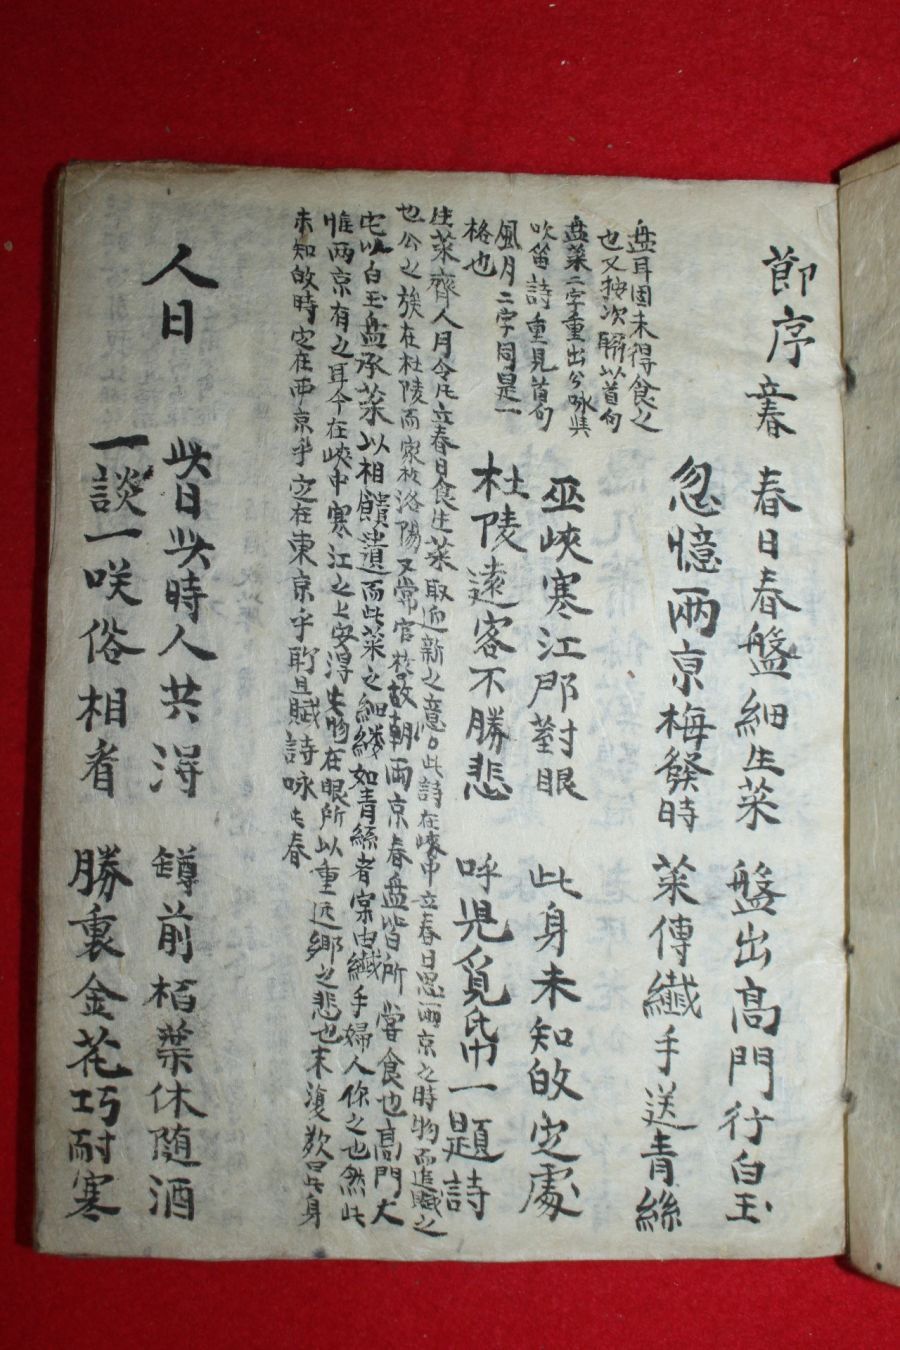 節序 立春 春日春盤細生菜 盤出高門行白玉
忽憶兩京梅發時 菜傳纖手送青絲
巫峽寒江那對眼 此身未知故定處
杜陵遠客不勝悲 呼兒覓帋一題詩
生菜齊人月令凡立春日食生菜取迎新之意○此詩在峽中立春日思兩京之時物而追賦之
也公之族在杜陵而家於洛陽又常官於故朝兩京春盘皆所嘗食也高門大
宅以白玉盘承菜以相饋遺而此菜之細縷如青絲者宲由纖手婦人你之也然此
惟兩京有之耳今在峽中寒江之上安得此物在眼所以重近鄉之悲也末復歎曰此身
未知故時定在西京乎定在東京乎聊且賦詩咏此春
盘耳固未得食之
也又按次聨以首句
盘菜二字重出公咏與
吹笛詩重見首句
風月二字同是一
格也
人日 此日此時人共淂 鐏前栢葉休随酒
一談一咲俗相看 勝裏金花巧耐寒